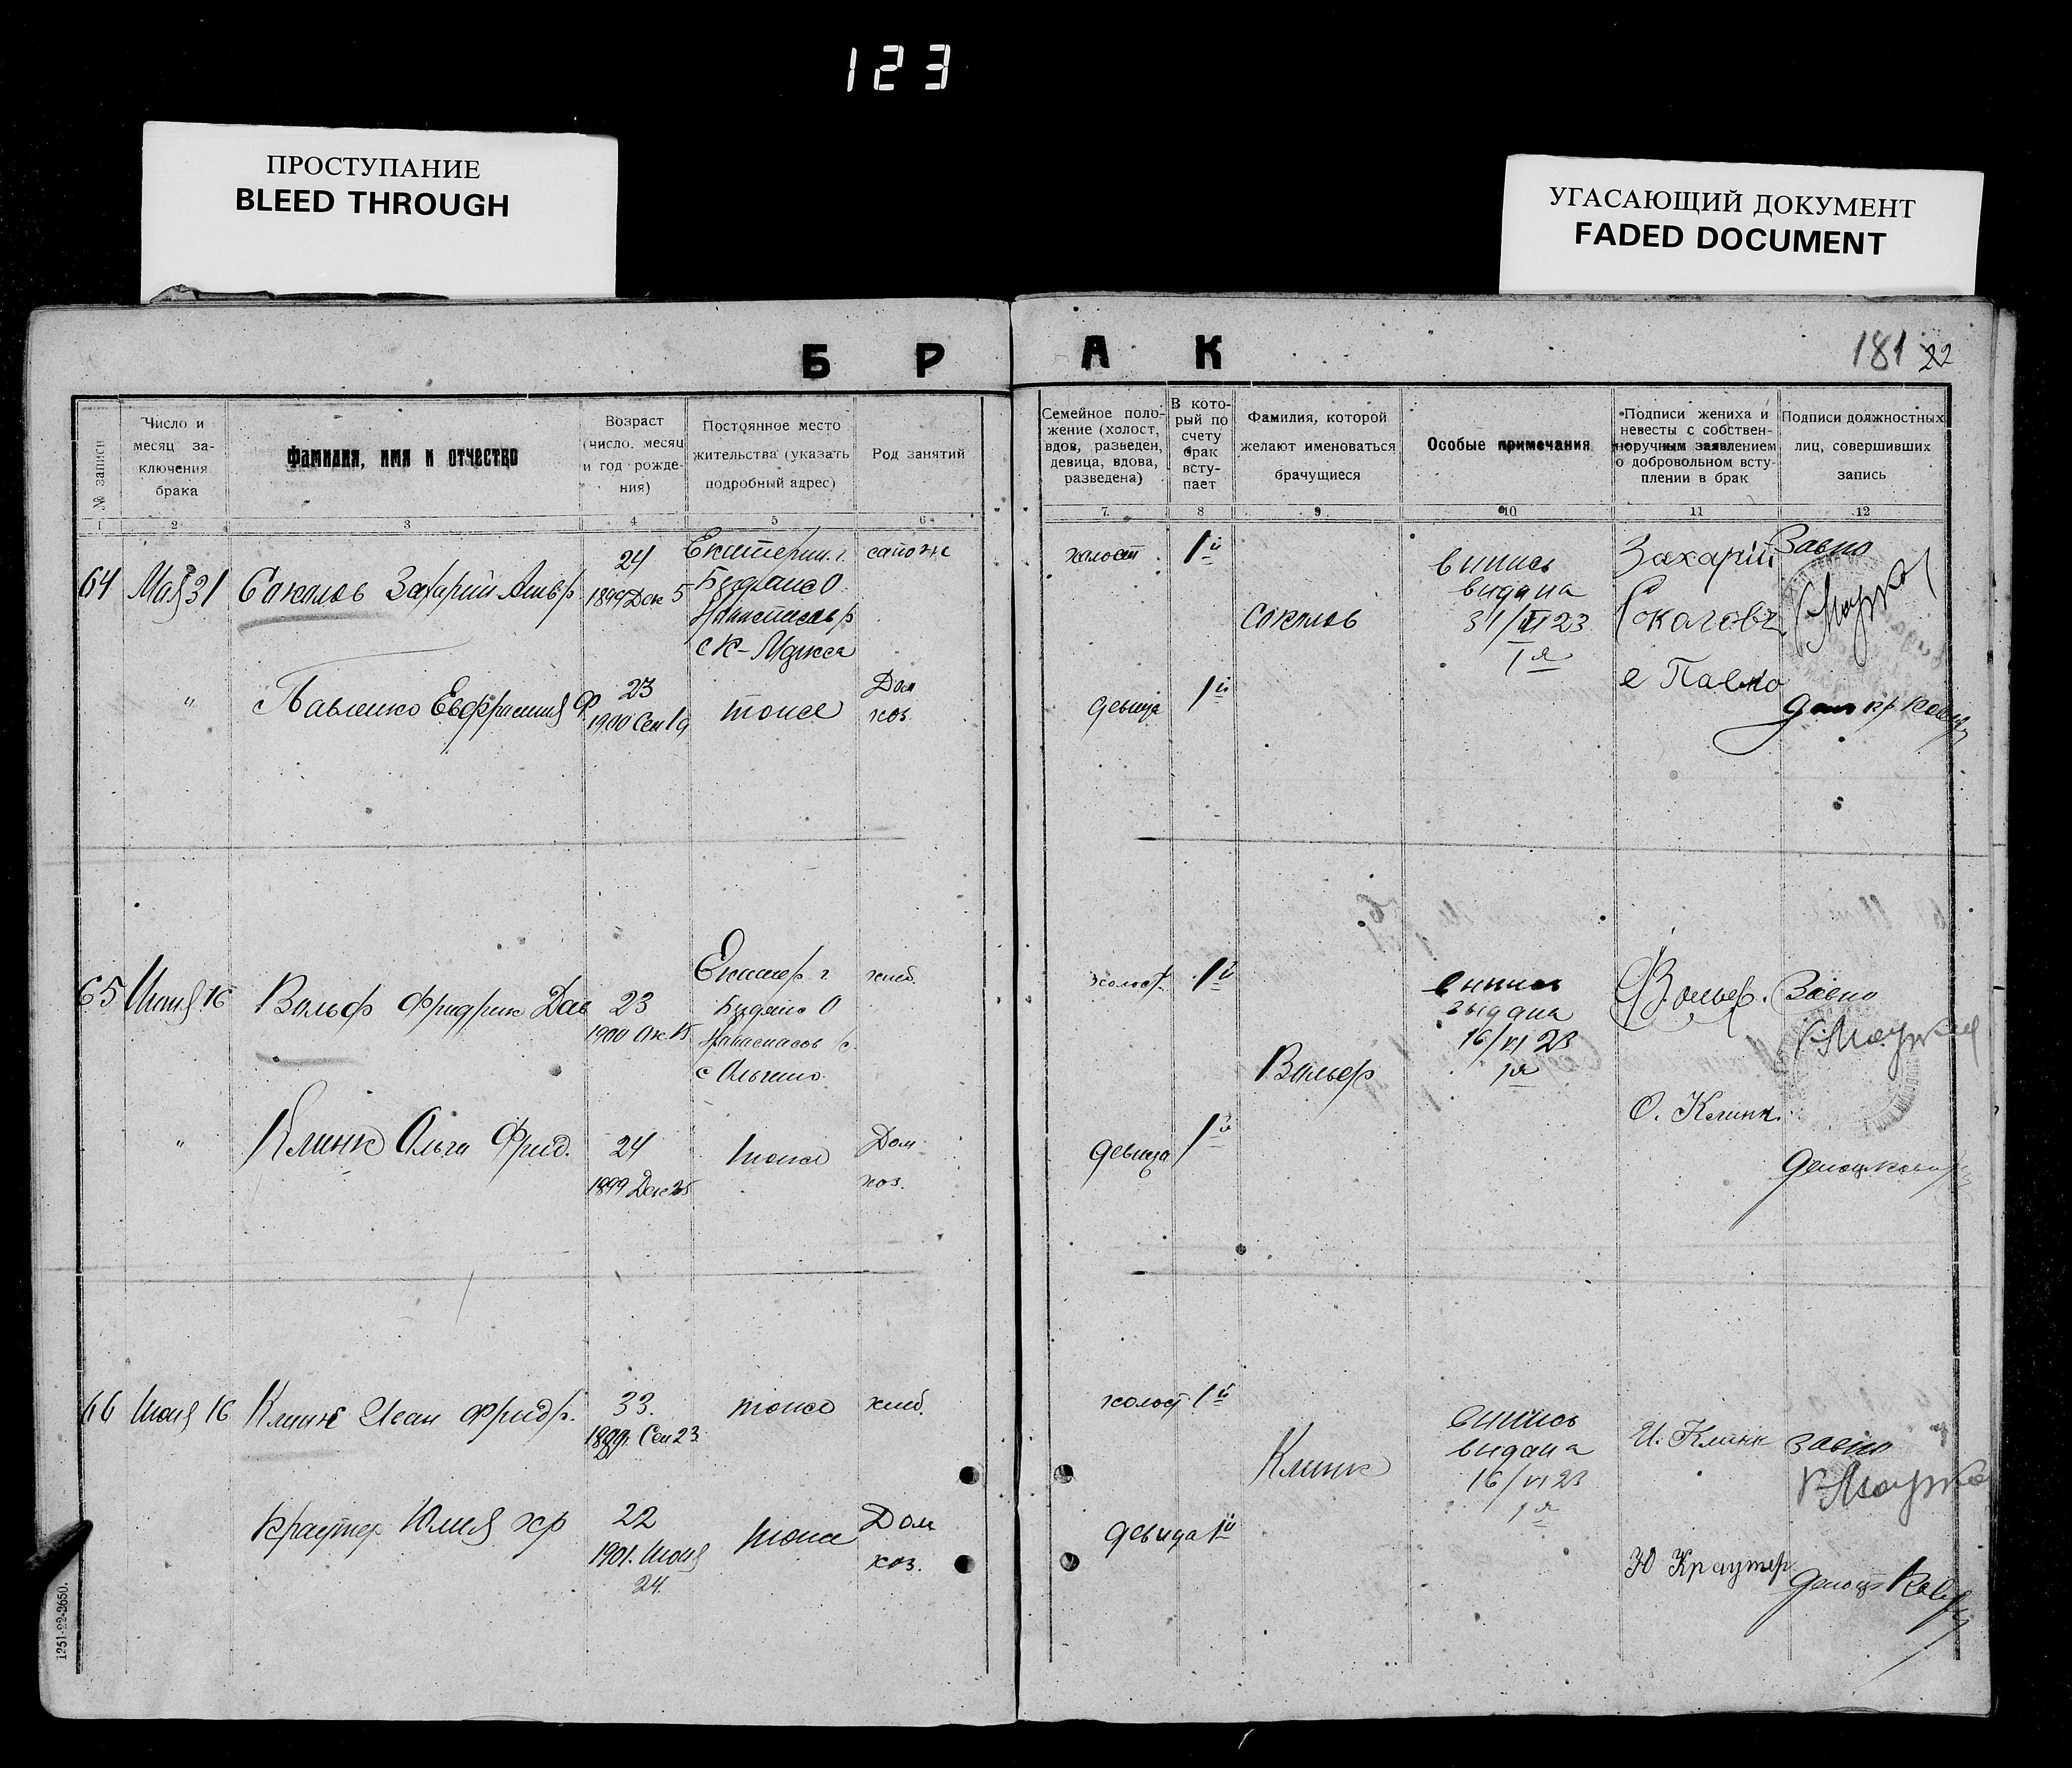 123
ПРОСТУПАНИЕ
BLEED THROUGH
УГАСАЮЩИЙ ДОКУМЕНТ
FADED DOCUMENT
Б Р А К
181 22
№ записи
Число и
месяц за-
ключения
брака
Фамилия, имя и отчество
Возраст
(число, месяц
и год рожде-
ния)
Постоянное место
жительства (указать
подробный адрес)
Род занятий
Семейное поло-
жение (холост,
вдов, разведен,
девица, вдова,
разведена)
В кото-
рый по
счету
брак
всту-
пает
Фамилия, которой
желают именоваться
брачущиеся
Особые примечания
Подписи жениха и
невесты с собствен-
норучным заявлением
о добровольном всту-
плении в брак
Подписи должностных
лиц, совершивших
запись
1 2 3 4 5 6 7 8 9 10 11 12
64 Мая 31
Захарий
24
1899 Дек 5
Екатерин. г.
с К-Маркса
сапожн
холост
1й
Соколов
выпись
выдана
31/VI 23
1я
Захарій
Соколовъ
Завпо
"
Павленко Евфросиния Ф
23
1900 Сен 19
тоже
Дом
хоз
девица
1й
е Павко
65 Июня 16
Вольф Фридрих Дав
23
1900 Ок. 15
Екатер г
хлеб.
холост
1й
Вольф
выпись
выдана
16/VI 23
1я
Вольф.
Завпо
"
Клинк Ольга Фрид.
24
1899 Дек 25
тоже
Дом
хоз.
девица
1й
О. Клинк.
66 Июня 16
Клинк Иван Фридр.
33.
Сен 23
тоже
хлеб.
холост
1й
Клинк
выпись
выдана
16/VI 23
1я
И. Клинк
завпо
Краутер Юлия хр
22
1901. Июня
24.
тоже
Дом
хоз.
девица
1й
Ю Краутер
1251-22-2650.